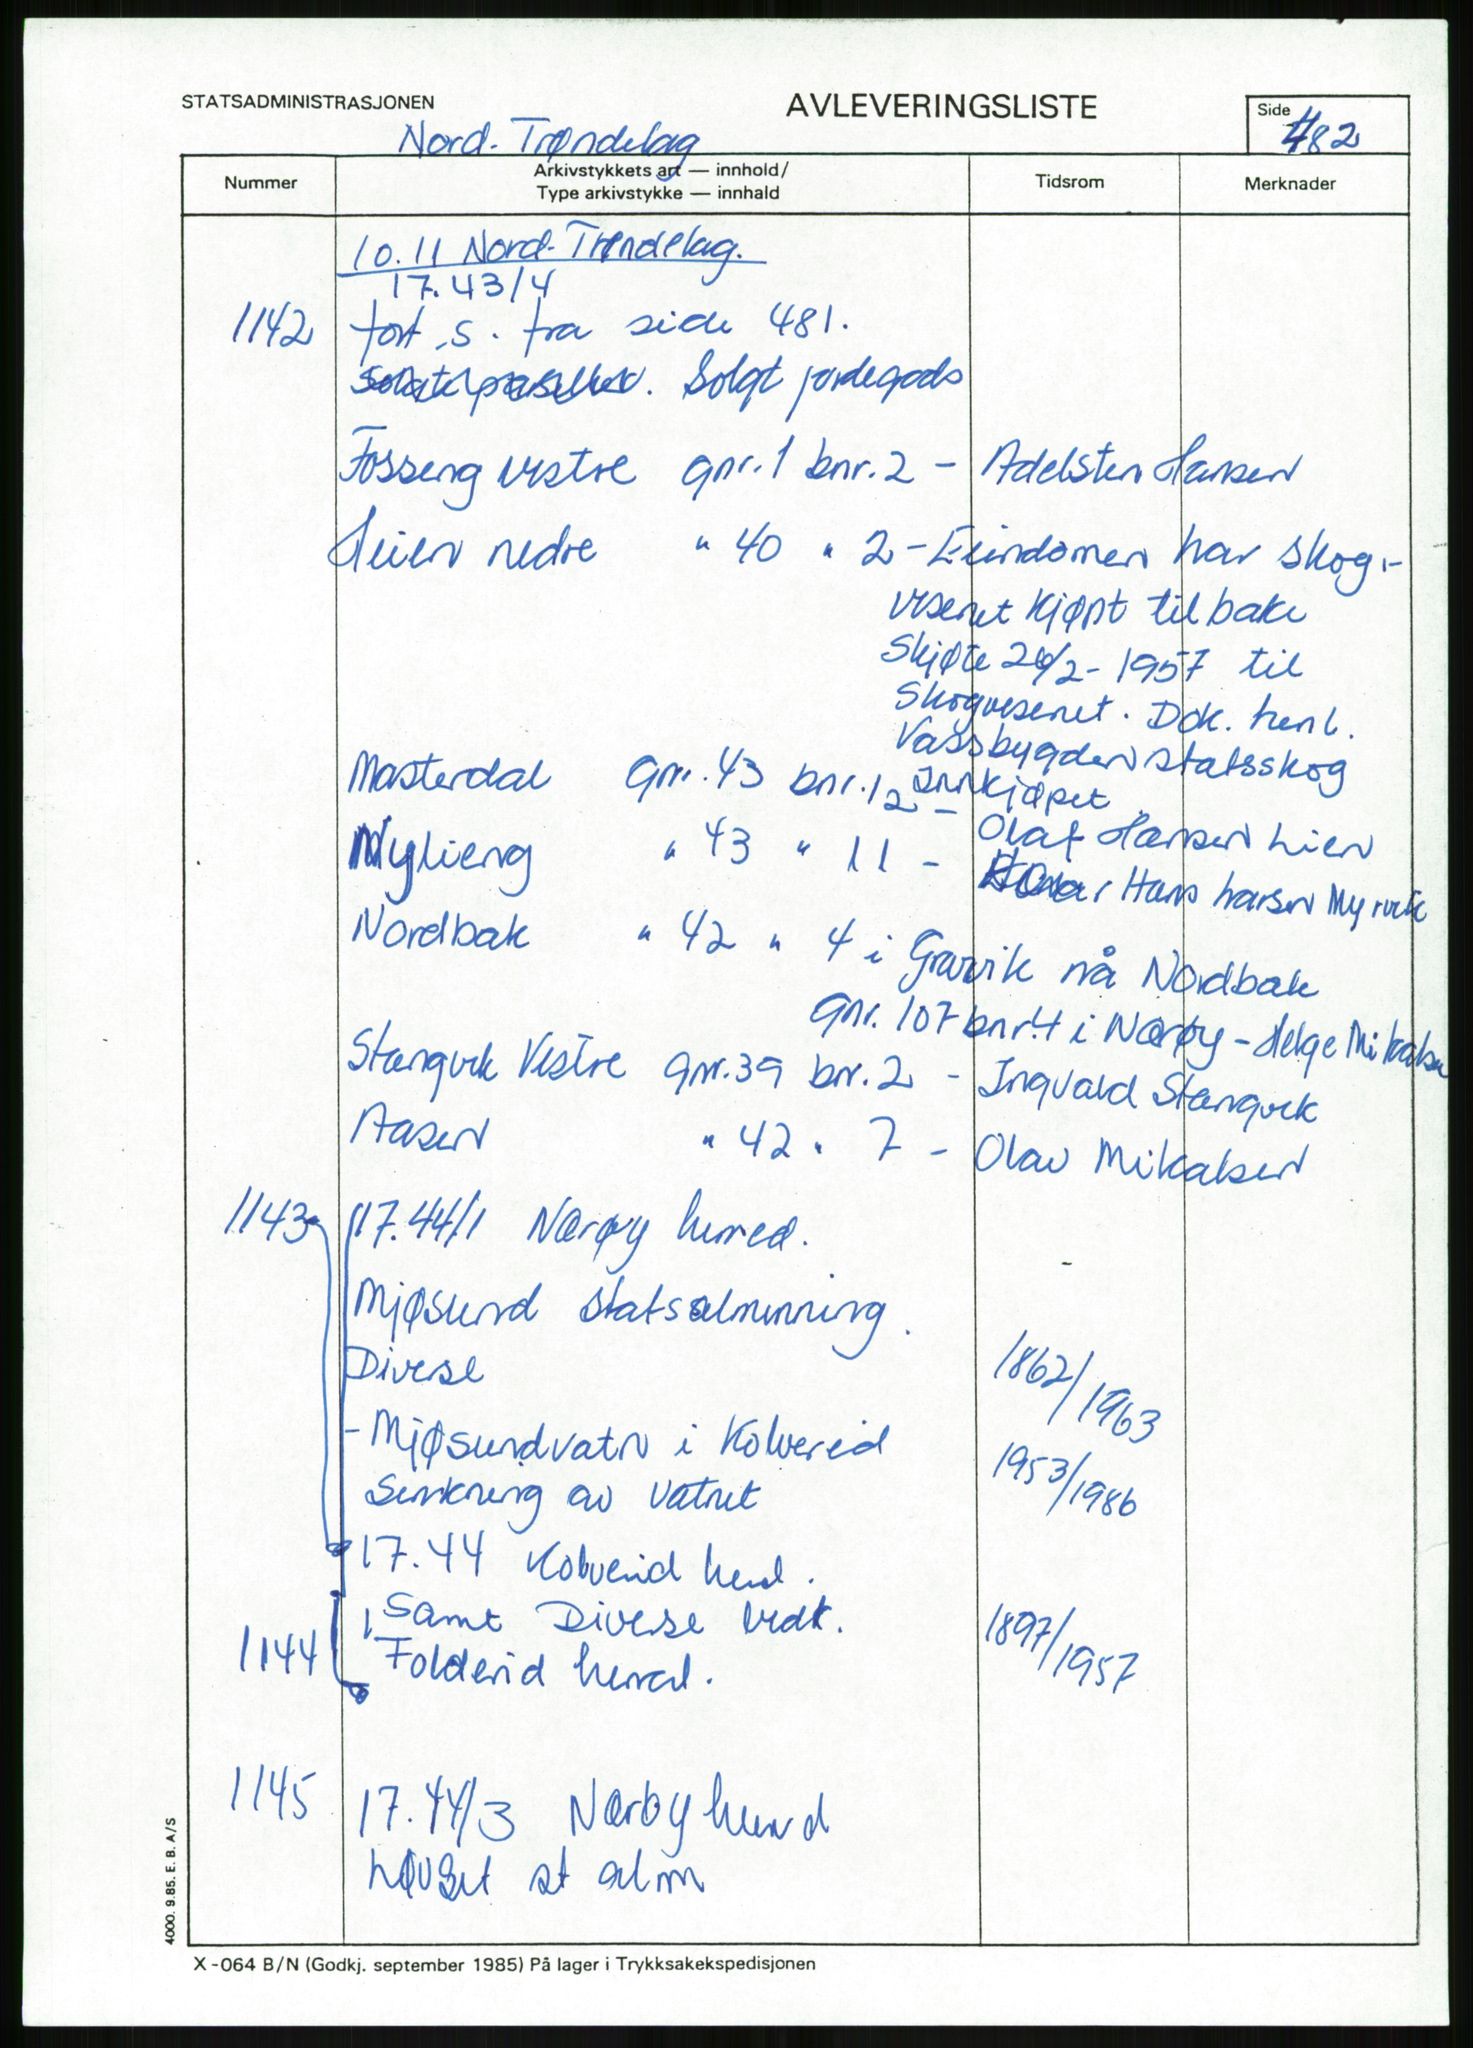 STATSADMINISTRASJONEN
AVLEVERINGSLISTE
Side 482
Nord-Trøndelag
Nummer
Arkivstykkets art — innhold/
Type arkivstykke — innhald
Tidsrom
Merknader
10.11 Nord-Trøndelag.
17.43/4
1142 fort.s. fra side 481.
Solgt jordegods
Fosseng vestre gnr. 1 bnr. 2 - Adelsten Hansen
Heien nedre " 40 " 2 - Eiendomen har skog-
vesenet kjøpt tilbake
Skjøte 26/2-1957 til
Skogvesenet. Dok. henl.
Vassbygden statsskog
Innkjøpet
Masterdal gnr. 43 bnr. 12 - Olaf Hansen Lien
Nylieng " 43 " 11 - Hans Larsen Myrvik
Nordbak " 42 " 4 i Gravvik nå Nordbak
gnr. 107 bnr. 4 i Nærøy - Helge Mikalsen
Stangvik Vestre gnr. 39 bnr. 2 - Ingvald Stangvik
Aasen " 42 " 7 - Olav Mikalsen
1143 17.44/1 Nærøy herred.
Mjøsund statsalmenning.
Diverse 1862/1963
- Mjøsundvatn i Kolvereid 1953/1986
Senkning av vatnet
17.44 Kolvereid herred.
Samt Diverse vedk. 1897/1957
1144 Foldereid herred.
1145 17.44/3 Nærøy herred
Løvset st alm
4000. 9.85. E. B. A/S
X-064 B/N (Godkj. september 1985) På lager i Trykksakekspedisjonen